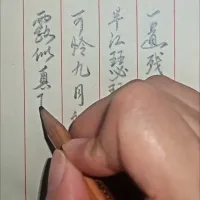 一道残
半江瑟
可怜九月
露似真